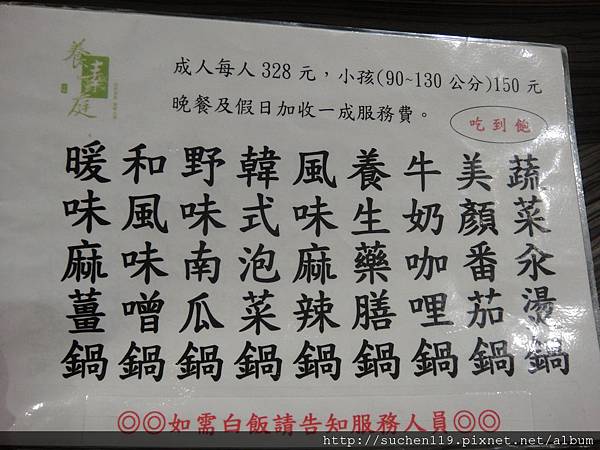 養素庭
成人每人 328 元，小孩(90~130 公分)150 元
晚餐及假日加收一成服務費。
吃到飽
蔬菜汆燙鍋
美顏番茄鍋
牛奶咖哩鍋
養生藥膳鍋
風味麻辣鍋
韓式泡菜鍋
野味南瓜鍋
和風味噌鍋
暖味麻薑鍋
◎◎如需白飯請告知服務人員◎◎
http://suchen119.pixnet.net/album